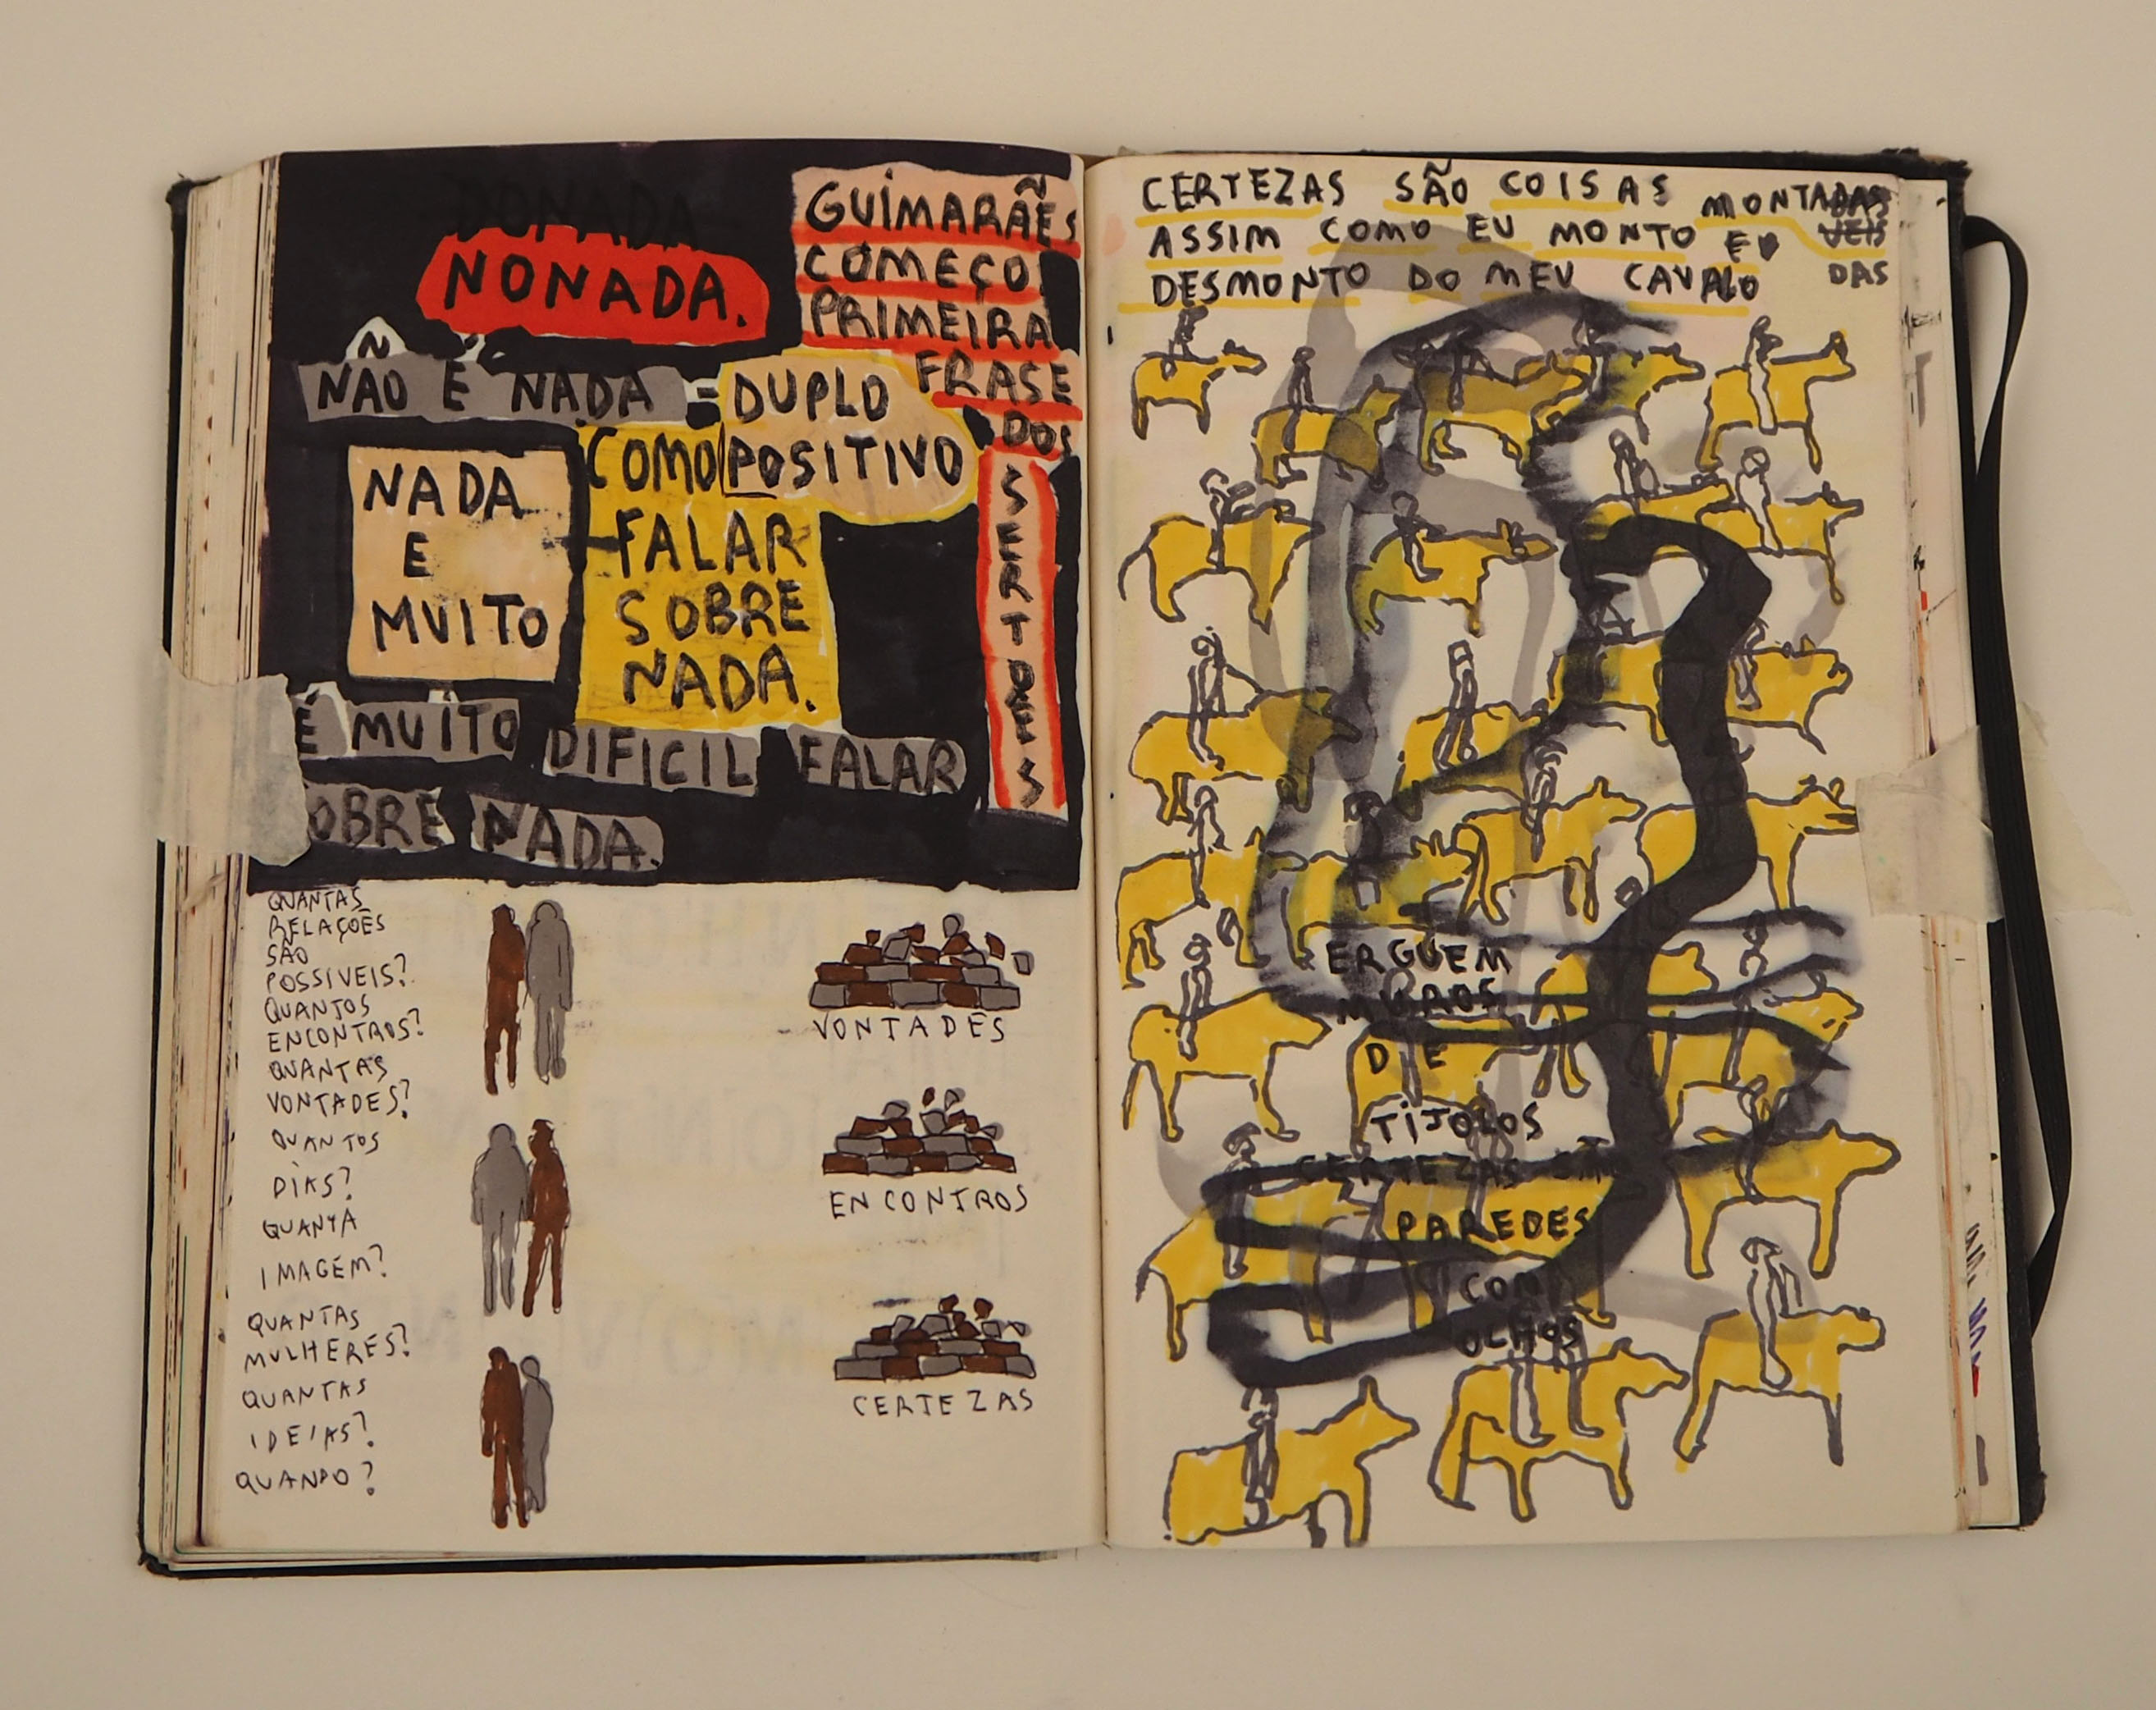 DONADA
NONADA.
GUIMARÃES
COMEÇO
PRIMEIRA
FRASE
DOS
SERTÕES
NÃO É NADA = DUPLO
POSITIVO
NADA
E
MUITO
COMO
FALAR
SOBRE
NADA.
É MUITO DIFICIL FALAR
OBRE NADA.
QUANTAS
RELAÇÕES
SÃO
POSSIVEIS?
QUANTOS
ENCONTROS?
QUANTAS
VONTADES?
QUANTOS
DIAS?
QUANTA
IMAGEM?
QUANTAS
MULHERES?
QUANTAS
IDEIAS?
QUANDO?
VONTADES
ENCONTROS
CERTEZAS
CERTEZAS SÃO COISAS MONTADAS
VEIS
DAS
ASSIM COMO EU MONTO EU
DESMONTO DO MEU CAVALO
ERGUEM
MUROS
DE
TIJOLOS
CERTEZAS
PAREDES
COM
OLHOS